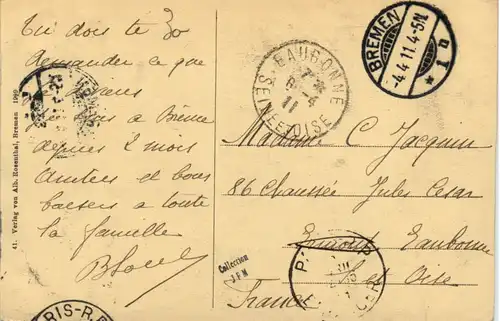 41. Verlag von Alb. Rosenthal, Bremen 1909
Tu dois te
demander ce que
je
à Brême
depuis 2 mois
Amitiés et bons
baisers à toute
la famille
BREMEN
-4.4.11.4-5N.
* 1 n
EAUBONNE
6 -4
11
SEINE-ET-OISE
Madame C Jacquin
86 Chaussée Jules César
Ermont Eaubonne
S et Oise
France
Collection
JPM
PARIS-R.P